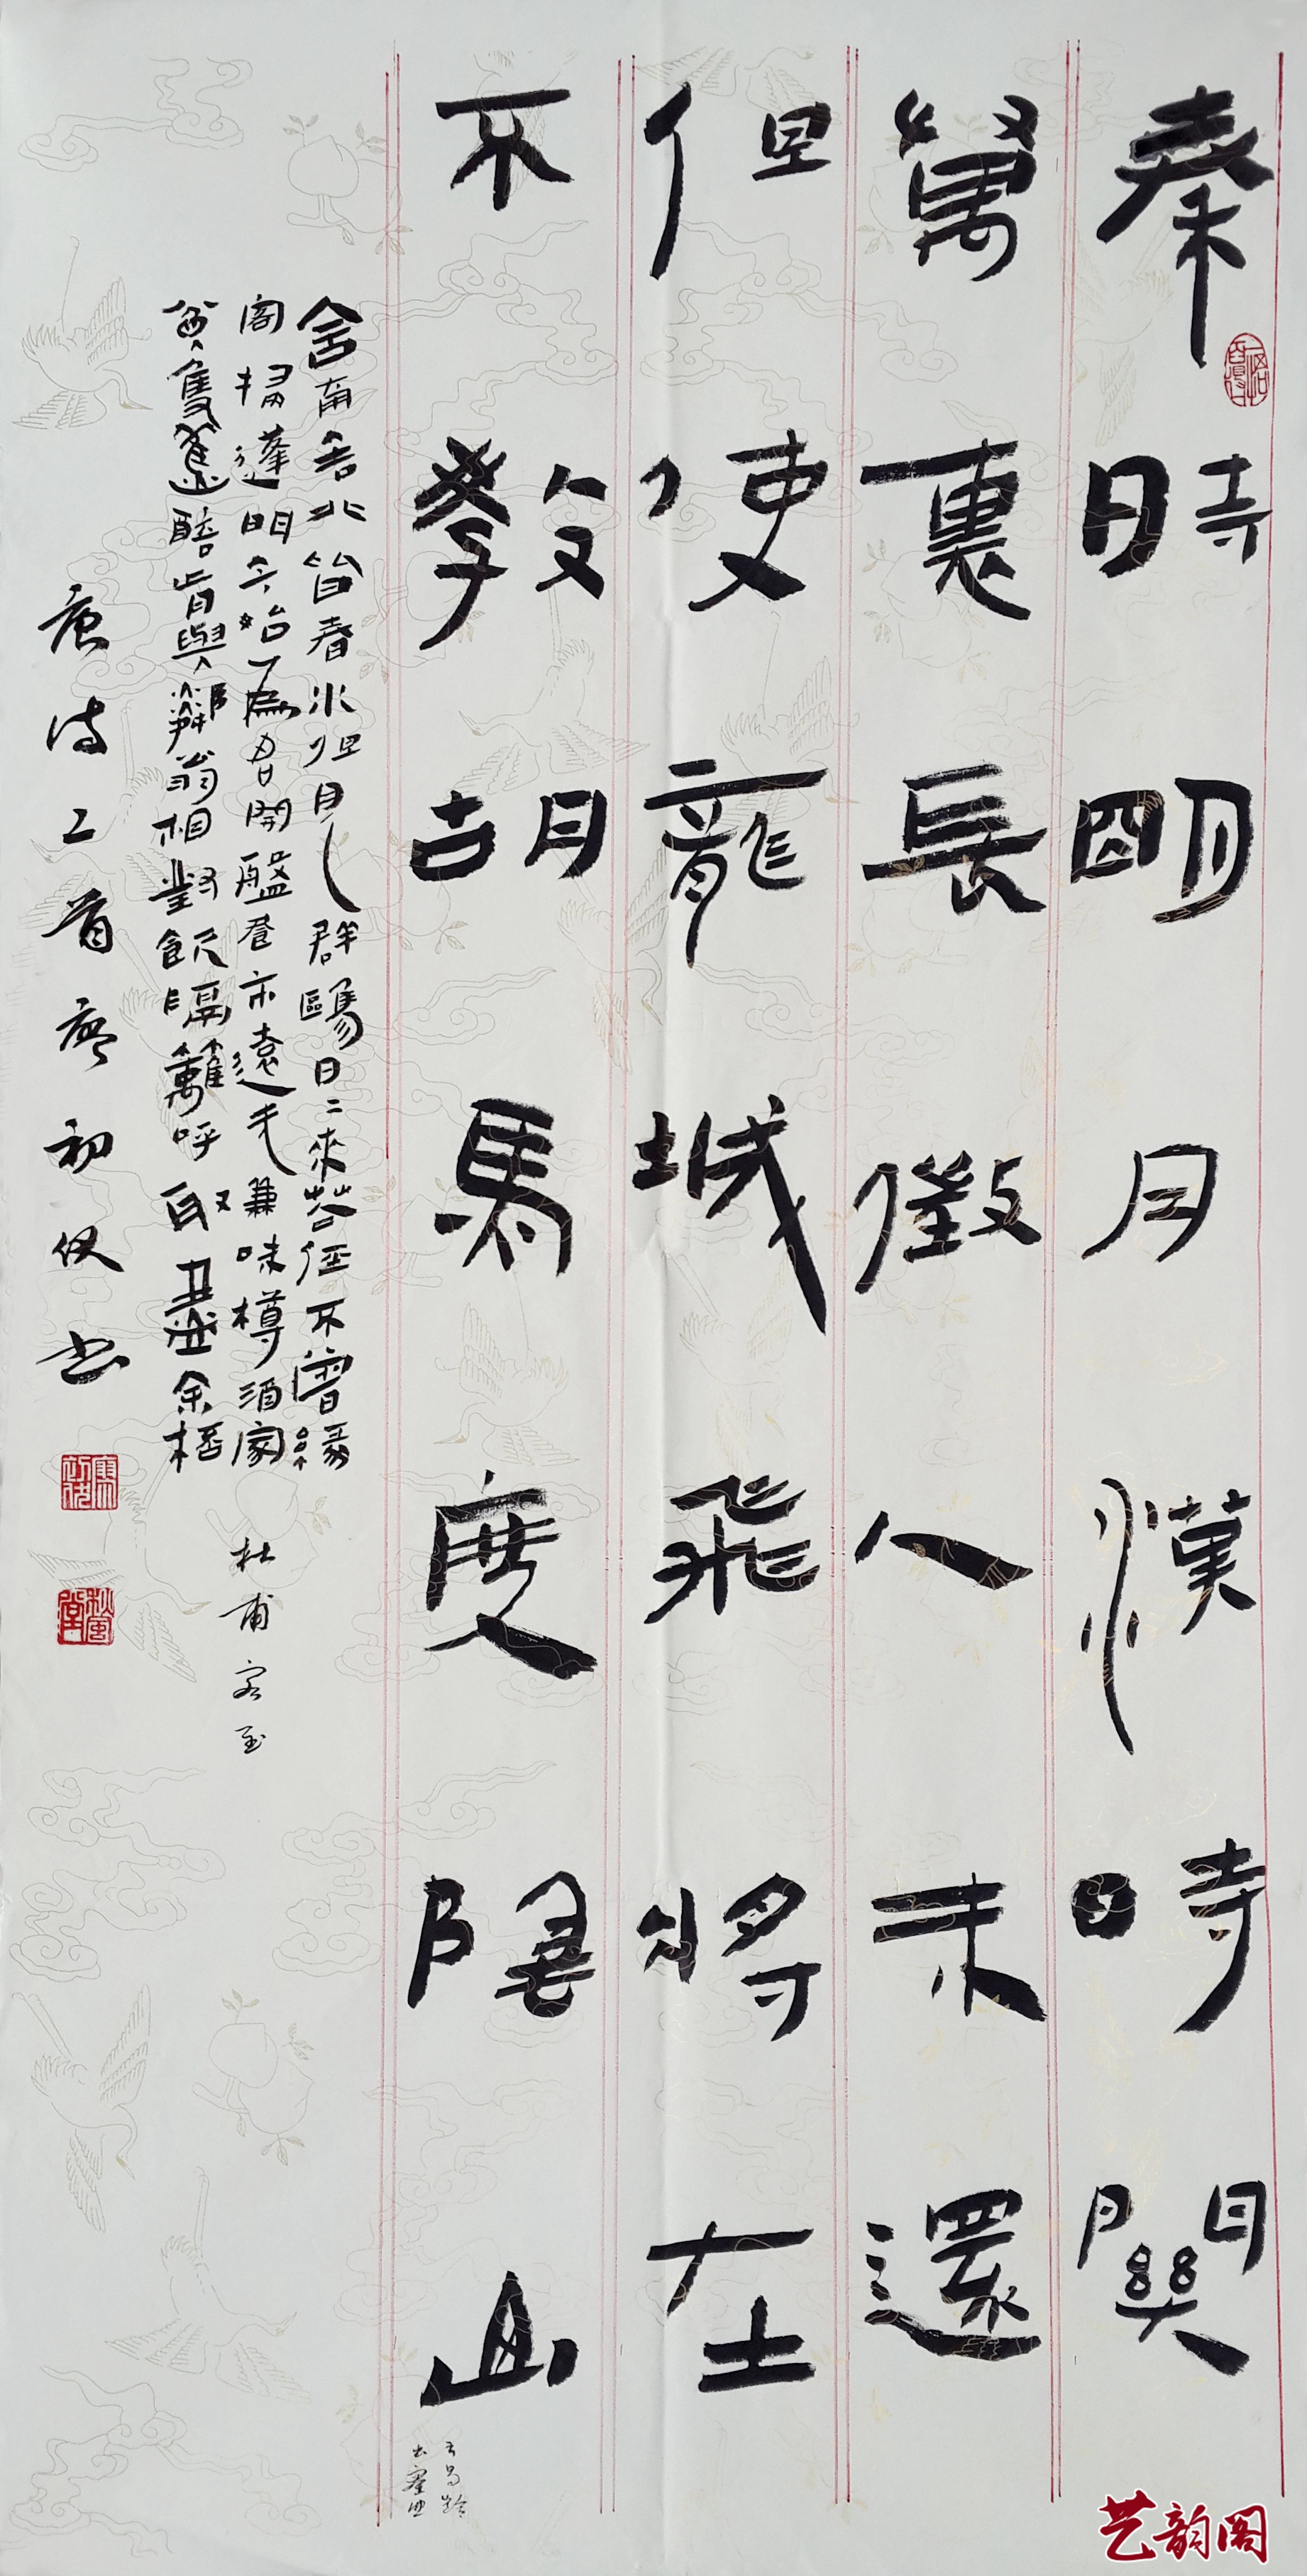 秦時明月漢時關
萬裏長徵人未還
但使龍城飛將在
不教胡馬度陰山
王昌齡
出塞曲
舍南舍北皆春水但見群鷗日二來花徑不曾緣
客掃蓬門今始爲君開盤飧市遠无兼味樽酒家
貧隻舊醅肯與鄰翁相對飲隔籬呼取盡余桮
杜甫 客至
唐诗二首 廖初书
艺韵阁